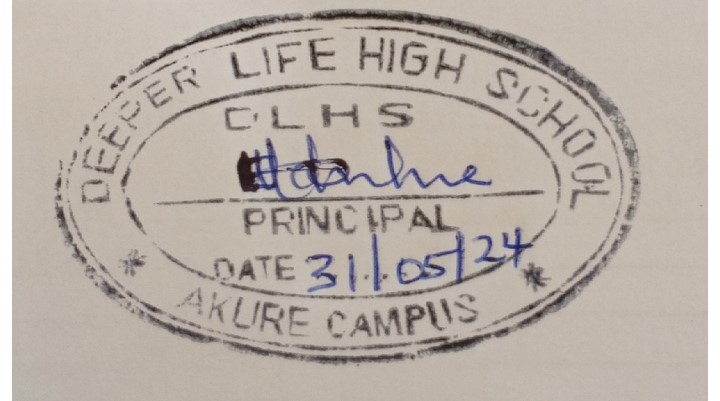 DEEPER LIFE HIGH SCHOOL
DLHS
PRINCIPAL
DATE 31/05/24
* AKURE CAMPUS *